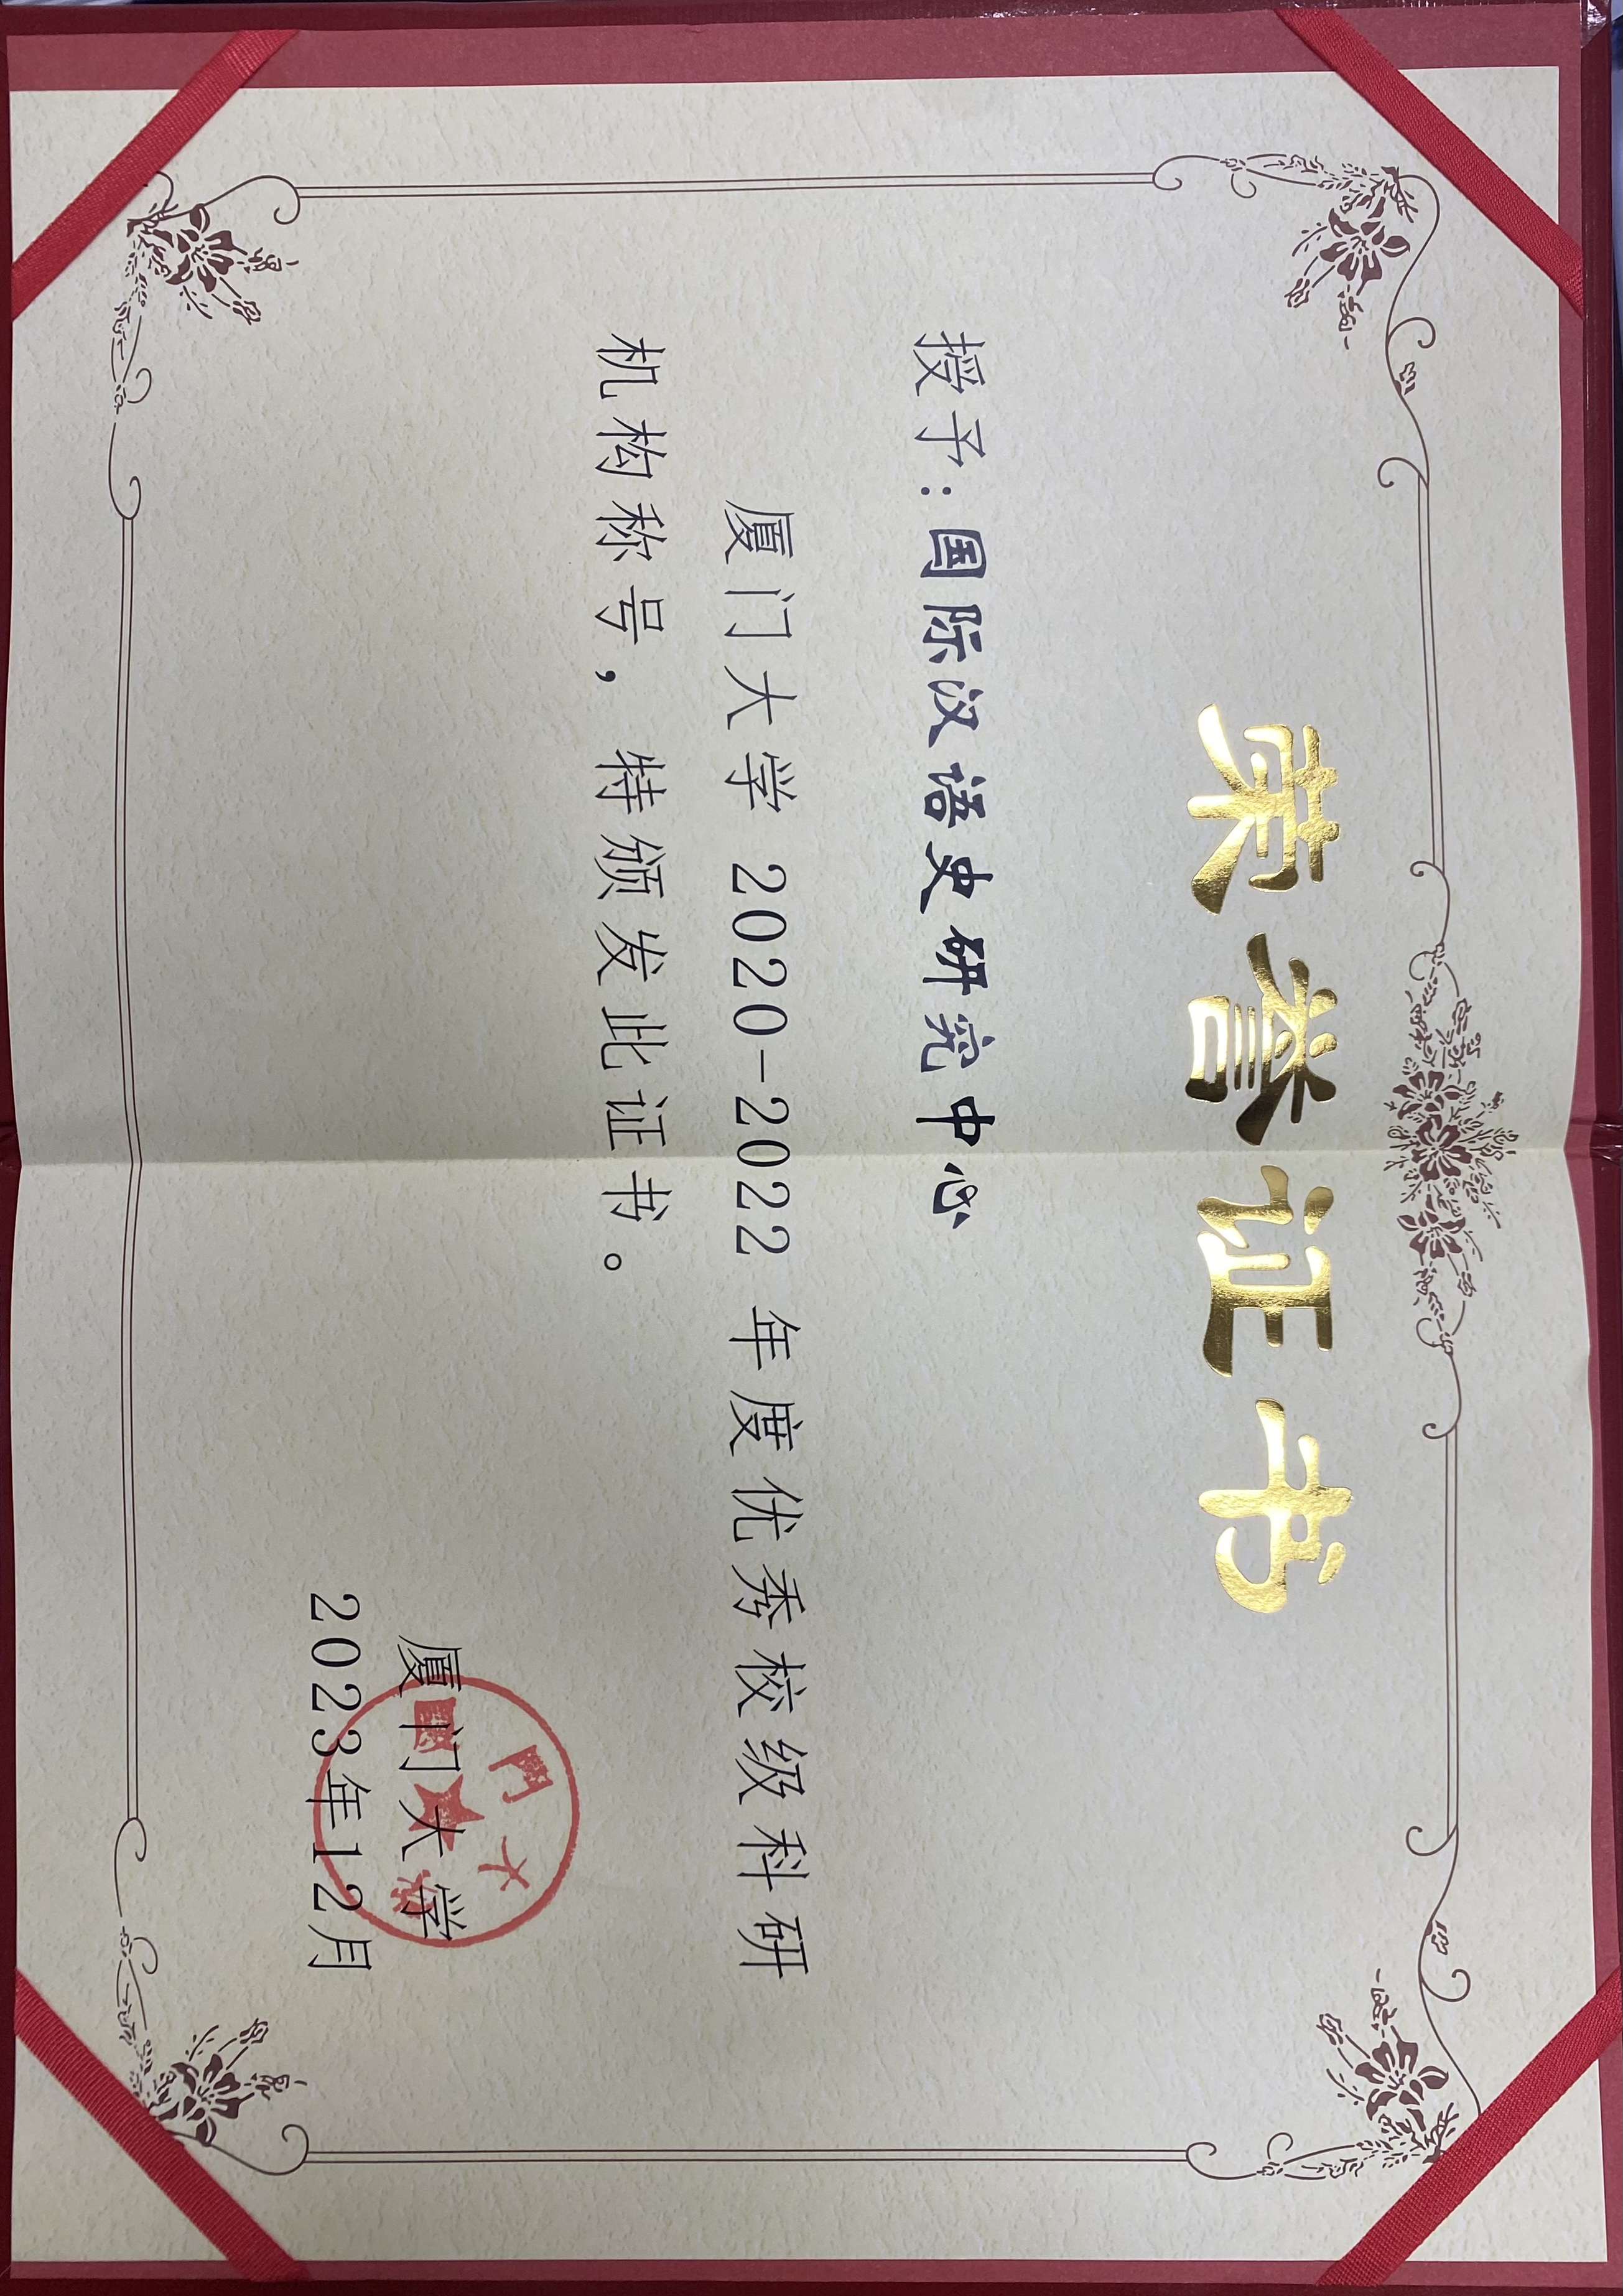 荣誉证书
授予：国际汉语史研究中心
厦门大学 2020-2022 年度优秀校级科研
机构称号，特颁发此证书。
厦门大学
2023年12月
厦門大学